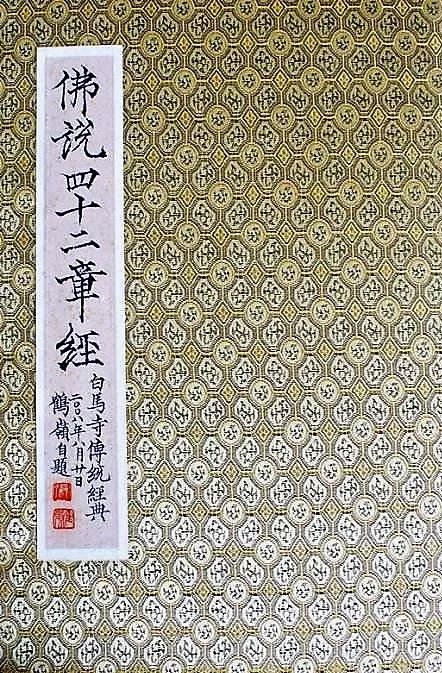 佛说四十二章經
白馬寺傳統經典
二〇〇八年八月廿日
鶴嶺自題